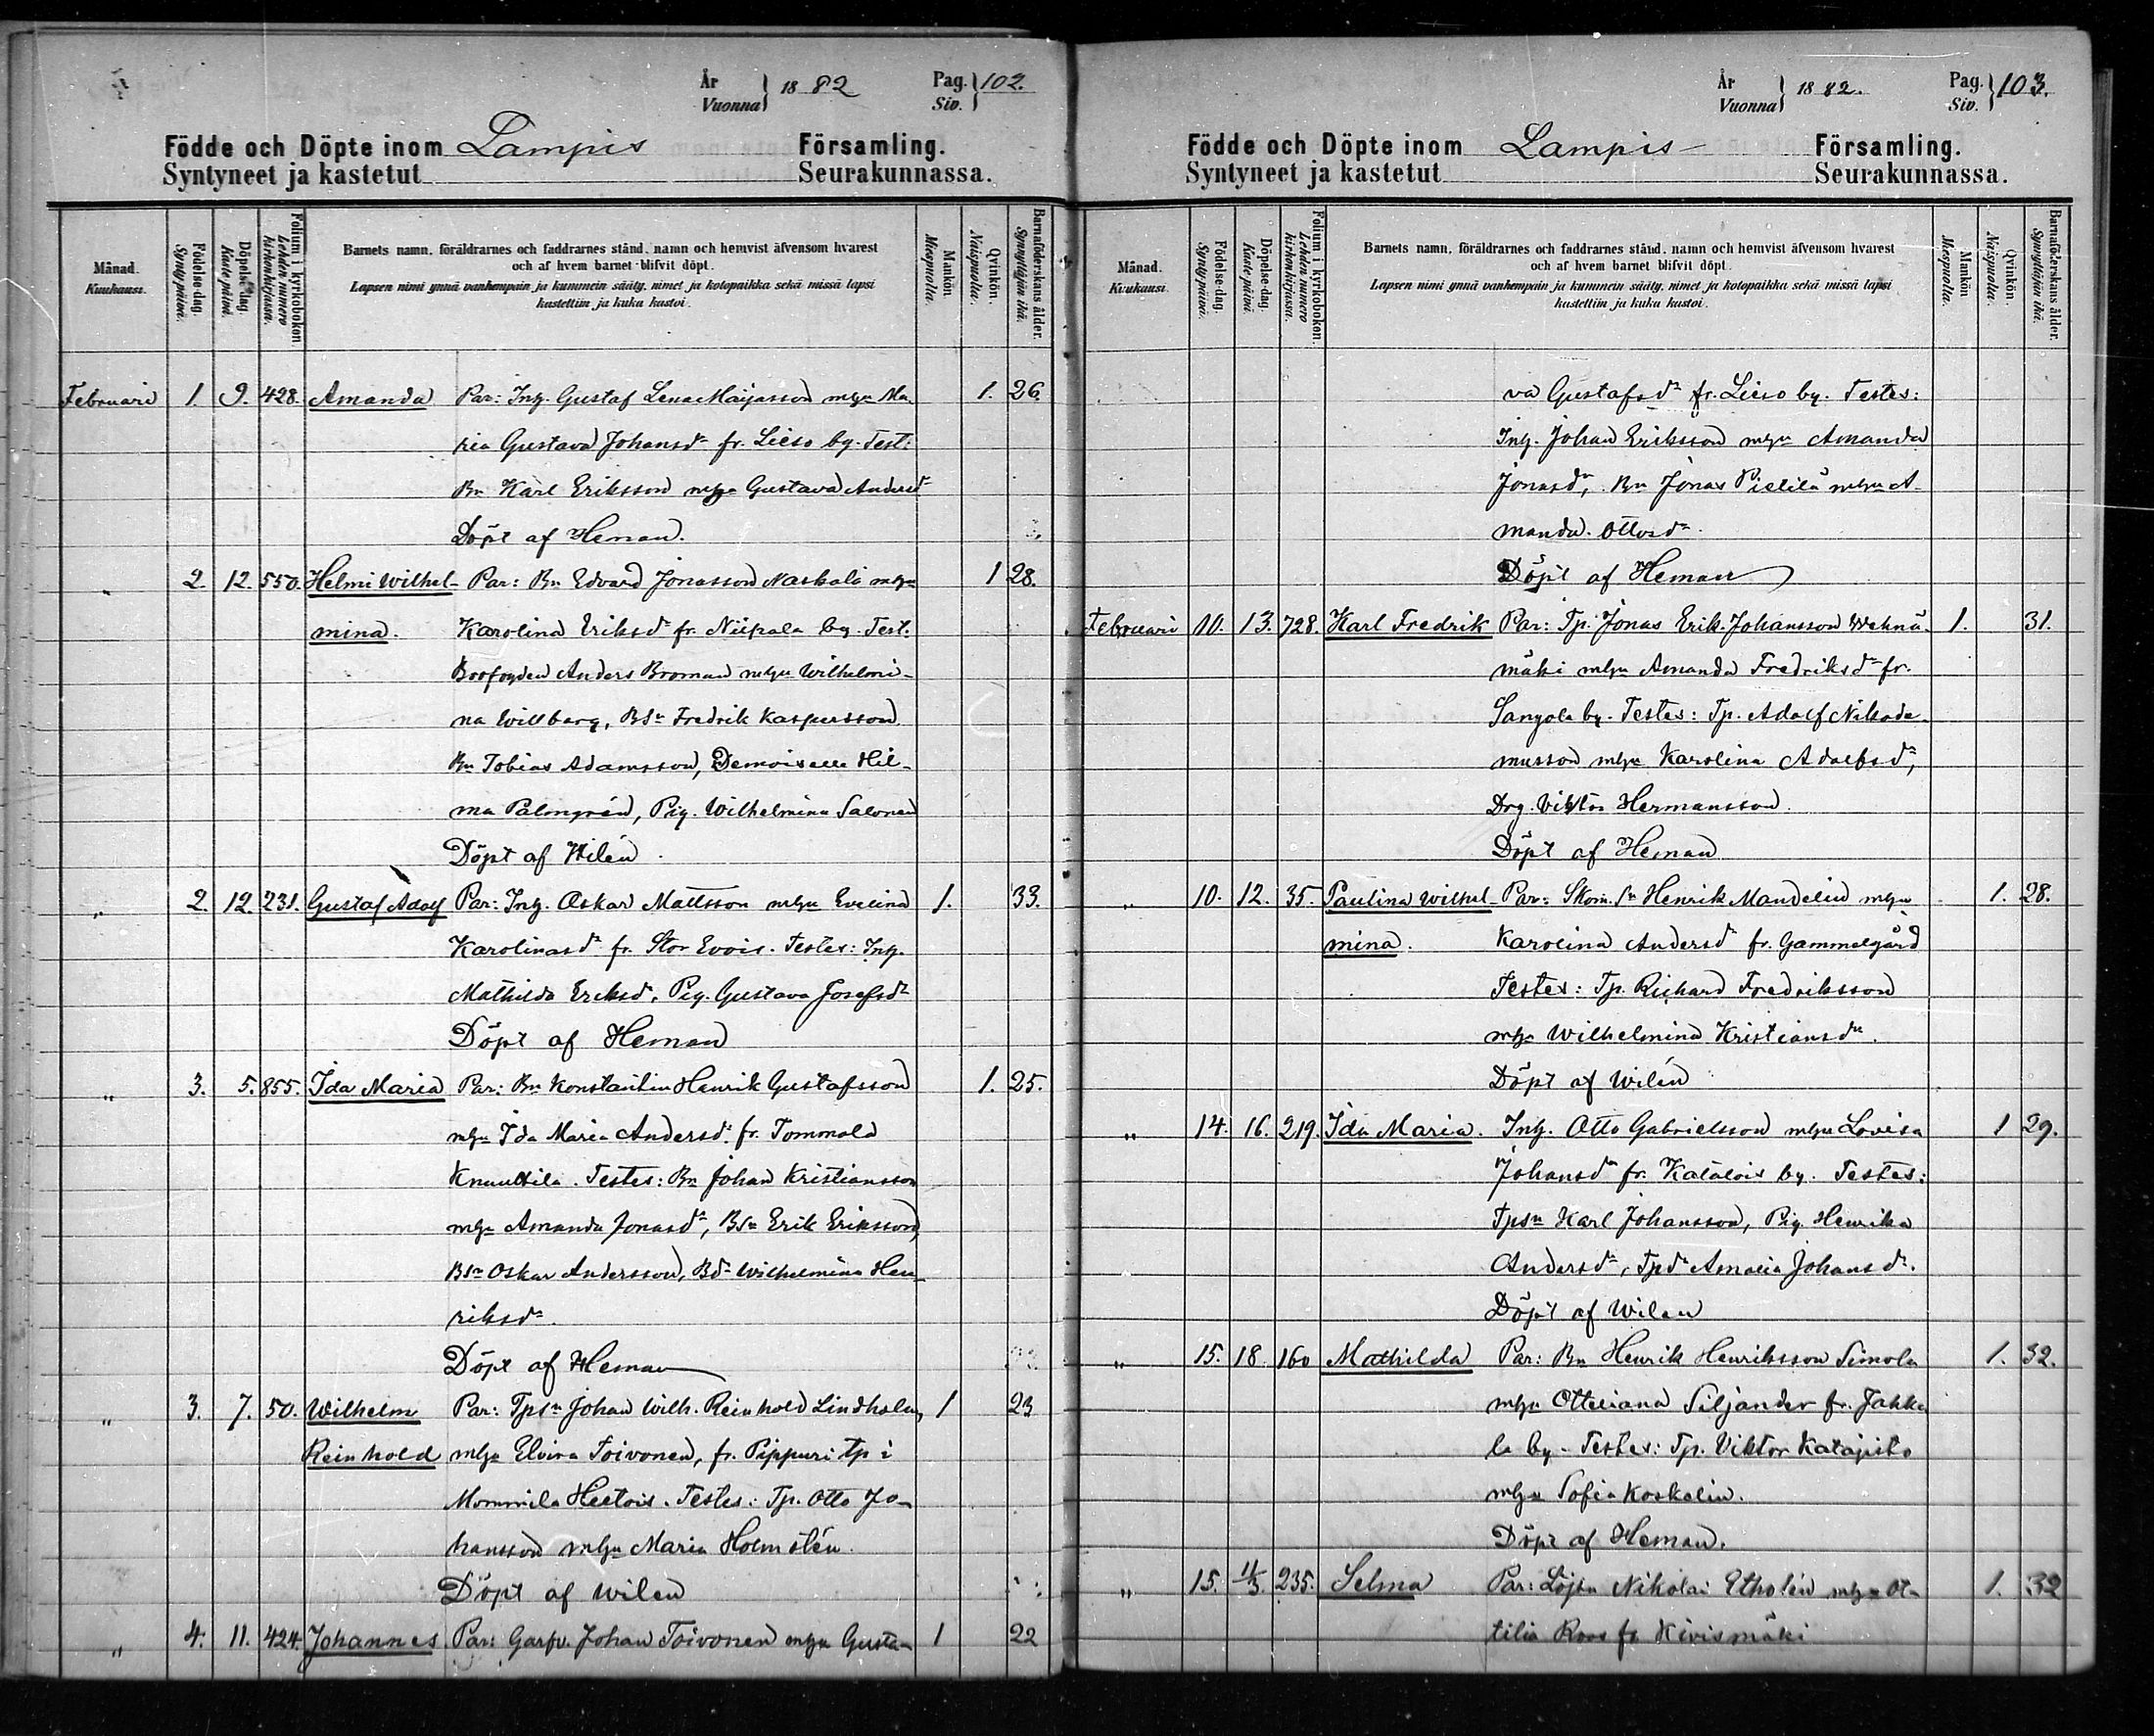 År
Vuonna } 1882
Pag.
Siv. } 102.
Födde och Döpte inom Lampis Församling.
Syntyneet ja kastetut Seurakunnassa.
Månad.
Kuukausi.
Födelse-dag.
Syntypäivä.
Döpelse-dag.
Kaste päivä.
Folium i kyrkoboken
Lehden numero
kirkonkirjassa.
Barnets namn, föräldrarnes och faddrarnes stånd, namn och hemvist äfvensom hvarest
och af hvem barnet blifvit döpt.
Lapsen nimi ynnä vanhempain ja kummein sääty, nimet ja kotopaikka sekä missä lapsi
kastettiin ja kuka kastoi.
Mankön.
Miespuolia.
Qvinkön.
Naispuolia.
Barnaföderskans ålder.
Synnyttäjän ikä.
Februari 1. 9. 428. Amanda Par: Inh. Gustaf Lena Maijasson mhu Ma-
ria Gustava Johansdr fr. Lieso by. Test:
Bn Karl Eriksson mhu Gustava Andersdr
Döpt af Heman.
" 2. 12. 550. Helmi Wilhel- Par: Bn Edvard Jonasson Naskali mhu 1 28.
mina. Karolina Eriksdr fr. Niipala by. Test.
Anders Broman mhu Wilhelmi-
na Willberg, BSn Fredrik Kaspersson
Bn Tobias Adamsson, Demoiselle Hil-
ma Palmgrén, Pig. Wilhelmina Salonen
Döpt af Wilén.
" 2. 12. 231. Gustaf Adolf Par: Inh. Oskar Mattsson mhu Evelina 1. 33.
Karolinasdr fr. Stor Evois. Testes: Inh.
Mathilda Eriksd, Pig. Gustava Josefsdr
Döpt af Heman
" 3. 5. 855. Ida Maria Par: Bn Konstantin Henrik Gustafsson 1. 25.
mhu Ida Maria Andersdr. fr. Tommola
Knuuttila. Testes: Bn Johan Kristiansson
mhu Amanda Jonasdr, BSn Erik Eriksson,
BSn Oskar Andersson, Bdr Wilhelmina Hen-
riksdr.
Döpt af Heman
" 3. 7. 50. Wilhelm Par: Tpsn Johan Wilh. Reinhold Lindholm, 1 23
Reinhold mhu Elvira Toivonen, fr. Pippuri tp i
Mommila Hietois. Testes: Tp. Otto Jo-
hansson mhu Maria Holmstén.
Döpt af Wilen
" 4. 11. 424. Johannes Par: Garfv. Johan Toivonen mhu Gusta- 1 22
År
Vuonna } 1882.
Pag.
Siv. } 103.
Födde och Döpte inom Lampis Församling.
Syntyneet ja kastetut Seurakunnassa.
Månad.
Kuukausi.
Födelse-dag.
Syntypäivä.
Döpelse-dag.
Kaste päivä.
Folium i kyrkoboken.
Lehden numero
kirkonkirjassa.
Barnets namn, föräldrarnes och faddrarnes stånd, namn och hemvist äfvensom hvarest
och af hvem barnet blifvit döpt.
Lapsen nimi ynnä vanhempain ja kummein sääty, nimet ja kotopaikka sekä missä lapsi
kastettiin ja kuka kastoi.
Mankön
Miespuolia.
Qvinkön.
Naispuolia.
Barnaföderskans ålder.
Synnyttäjän ikä.
va Gustafsdr fr. Lieso by. Testes:
Inh. Johan Eriksson mhu Amanda
Jonasdr, Bn Jonas Pietilä mhu A-
manda Ottosdr.
Döpt af Heman
Februari 10. 13. 728. Karl Fredrik Par: Tp. Jonas Erik Johansson Wehnä- 1. 31.
mäki mhu Amanda Fredriksdr fr.
Sangola by. Testes: Tp. Adolf Nikode-
musson mhu Karolina Adolfsdr,
Drg. Viktor Hermansson.
Döpt af Heman
" 10. 12. 35. Paulina Wilhel- Par: Skom. Sn Henrik Mandelin mhu 1. 28.
mina. Karolina Andersdr fr. Gammelgård
Testes: Tp. Richard Fredriksson
mhu Wilhelmina Kristiansdr.
Döpt af Wilén
" 14. 16. 219. Ida Maria. Inh. Otto Gabrielsson mhu Lovisa 1 29.
Johansdr fr. Katalois by. Testes:
Tpsn Karl Johansson, Pig. Henrika
Andersdr, Tpdr Amalia Johansdr.
Döpt af Wilen
" 15. 18. 160 Mathilda Par: Bn Henrik Henriksson Simola 1. 32.
mhu Ottiliana Siljander fr. Jahko
la by. Testes: Tp. Viktor Katajisto
mhu Sofia Koskelin.
Döpt af Heman.
" 15. 4/3. 235. Selma Par: Löjtn Nikolai Etholén mhu Ot- 1. 32
tilia Roos fr Kivismäki